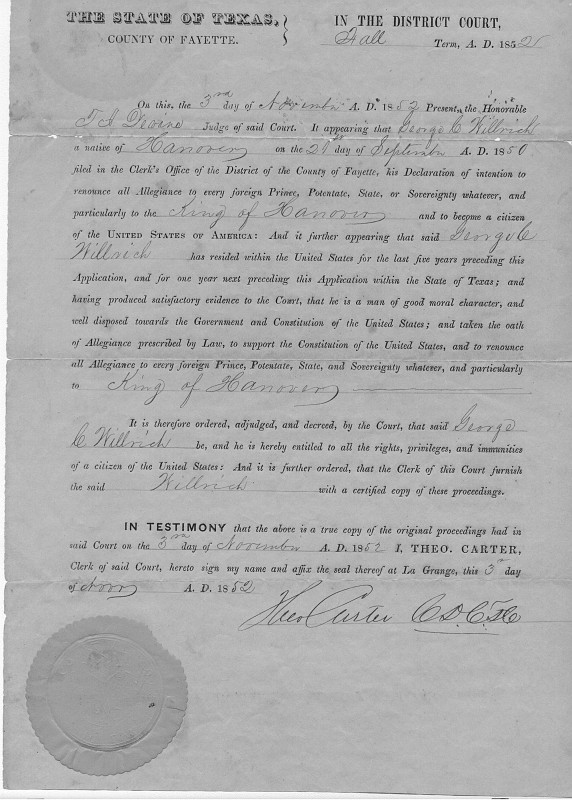 THE STATE OF TEXAS,
COUNTY OF FAYETTE.
IN THE DISTRICT COURT,
Fall Term, A. D. 1852
On this, the 3rd day of November A. D. 1852 Present, the Honorable
T J Devine Judge of said Court. It appearing that George C Willrich
a native of Hanover on the day of September A. D. 1850
filed in the Clerk's Office of the District of the County of Fayette, his Declaration of intention to
renounce all Allegiance to every foreign Prince, Potentate, State, or Sovereignty whatever, and
particularly to the King of Hanover and to become a citizen
of the UNITED STATES OF AMERICA: And it further appearing that said George C
Willrich has resided within the United States for the last five years preceding this
Application, and for one year next preceding this Application within the State of Texas; and
having produced satisfactory evidence to the Court, that he is a man of good moral character, and
well disposed towards the Government and Constitution of the United States; and taken the oath
of Allegiance prescribed by Law, to support the Constitution of the United States, and to renounce
all Allegiance to every foreign Prince, Potentate, State, and Sovereignty whatever, and particularly
to King of Hanover
It is therefore ordered, adjudged, and decreed, by the Court, that said George
C Willrich be, and he is hereby entitled to all the rights, privileges, and immunities
of a citizen of the United States: And it is further ordered, that the Clerk of this Court furnish
the said Willrich with a certified copy of these proceedings.
IN TESTIMONY that the above is a true copy of the original proceedings had in
said Court on the 3rd day of November A. D. 1852 I, THEO. CARTER,
Clerk of said Court, hereto sign my name and affix the seal thereof at La Grange, this 3rd day
of Novr A. D. 1852
Theo Carter C.D.C.F.C